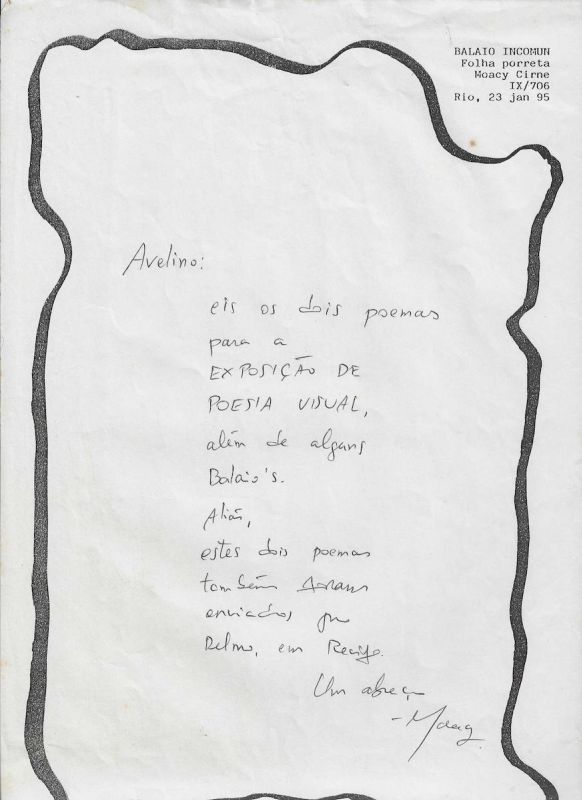 BALAIO INCOMUN
Folha porreta
Moacy Cirne
IX/706
Rio, 23 jan 95
Avelino:
eis os dois poemas
para a
EXPOSIÇÃO DE
POESIA VISUAL,
além de alguns
Balaio's.
Aliás,
estes dois poemas
também foram
enviados pra
Delmo, em Recife.
Um abraço
- Moacy